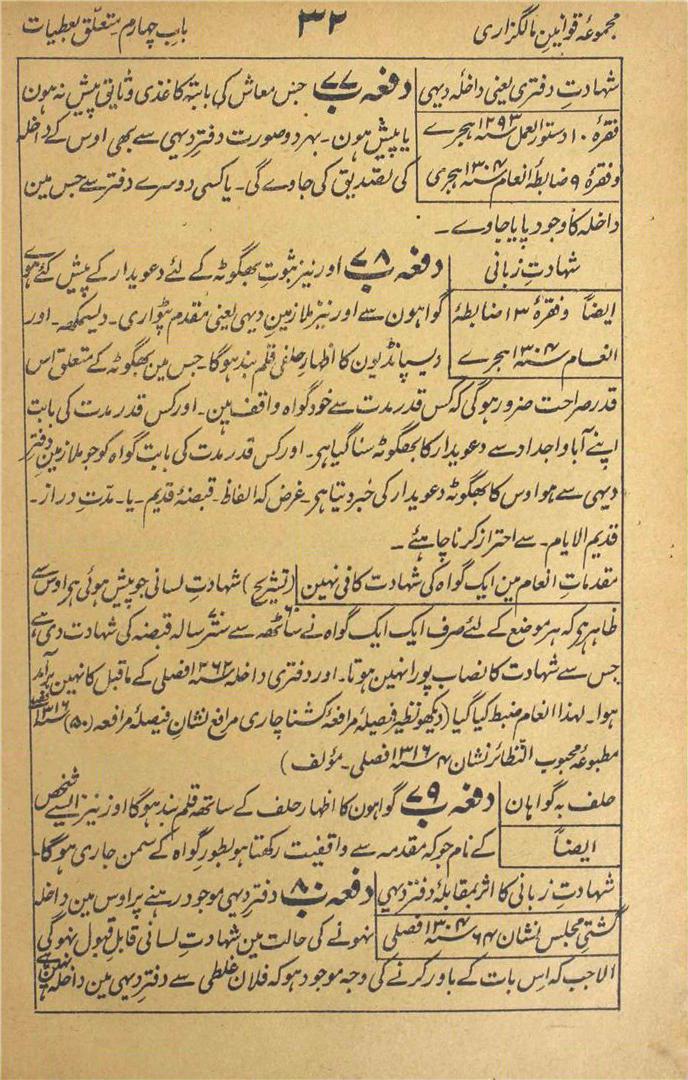 مجموعۂ قوانین مالگزاری ۳۲ باب چہارم متعلق بعطیات
شہادتِ دفتری یعنی داخلۂ دیہی دفعہ ۷۷ جس معاش کی بابتہ کاغذی وثایق پیش نہ ہون
فقرۂ ۱۰ دستور العمل سنہ ۱۲۹۳ ہجرے یا پیش ہون۔ بہر دو صورت دفتر دیہی سے بھی اوس کے داخلہ
و فقرۂ ۹ ضابطۂ انعام سنہ ۱۳۰۴ ہجری کی تصدیق کی جاوے گی۔ یا کسی دوسرے دفتر سے جس مین
داخلہ کا وجود پایا جاوے۔
شہادتِ زبانی دفعہ ۷۸ اور نیز ثبوتِ بھگوٹہ کے لئے دعویدار کے پیش کئے ہوے
ایضاً و فقرۂ ۱۳ ضابطۂ گواہون سے اور نیز ملازمین دیہی یعنی مقدم پٹواری۔ دیسمکھہ۔ اور
انعام سنہ ۱۳۰۴ ہجرے دیسپانڈیون کا اظہار حلفی قلم بند ہوگا۔ جس مین بھگوٹہ کے متعلق اس
قدر صراحت ضرور ہوگی کہ کس قدر مدت سے خود گواہ واقف ہین۔ اور کس قدر مدت کی بابت
اپنے آبا و اجداد سے دعویدار کا بھگوٹہ سنا گیا ہی۔ اور کس قدر مدت کی بابت گواہ کو جو ملازمین دفتر
دیہی سے ہو اوس کا بھگوٹہ دعویدار کی خبر دیتا ہر۔ غرض کہ الفاظ۔ قبضۂ قدیم۔ یا۔ مدّت دراز۔
قدیم الایام۔ سے احتراز کرنا چاہئے۔
مقدماتِ انعام مین ایک گواہ کی شہادت کافی نہین (تشریح) شہادتِ لسانی جو پیش ہوئی ہر اوس سے
ظاہر ہر کہ ہر موضع کے لئے صرف ایک ایک گواہ نے ساٹھہ سے ستر سالہ قبضہ کی شہادت دی ہے
جس سے شہادت کا نصاب پورا نہین ہوتا۔ اور دفتری داخلہ سنہ ۱۲۶۲ فصلی کے ماقبل کا نہین برآمد
ہوا۔ لہذا انعام ضبط کیا گیا (دیکھو نظیر فیصلۂ مرافعہ کشنا چاری مرافع نشان فیصلۂ مرافعہ (۵۰) سنہ ۱۳۱۶ فصلی
مطبوعۂ محبوب النظائر نشان ۴ سنہ ۱۳۱۶ فصلی۔ مؤلف)
حلف بہ گواہان دفعہ ۷۹ گواہون کا اظہار حلف کے ساتھہ قلم بند ہوگا اور نیز ایسے شخص
ایضاً کے نام جو کہ مقدمہ سے واقفیت رکھتا ہو بطور گواہ کے سمن جاری ہوگا۔
شہادتِ زبانی کا اثر بمقابلۂ دفتر دیہی دفعہ ۸۰ دفتر دیہی موجود رہنے پر اوس مین داخلہ
گشتی مجلس نشان ۶۴ سنہ ۱۳۰۴ فصلی نہونے کی حالت مین شہادتِ لسانی قابلِ قبول نہوگی
الا جب کہ اِس بات کے باور کرنے کی وجہ موجود ہو کہ فلان غلطی سے دفتر دیہی مین داخلہ نہین ہے